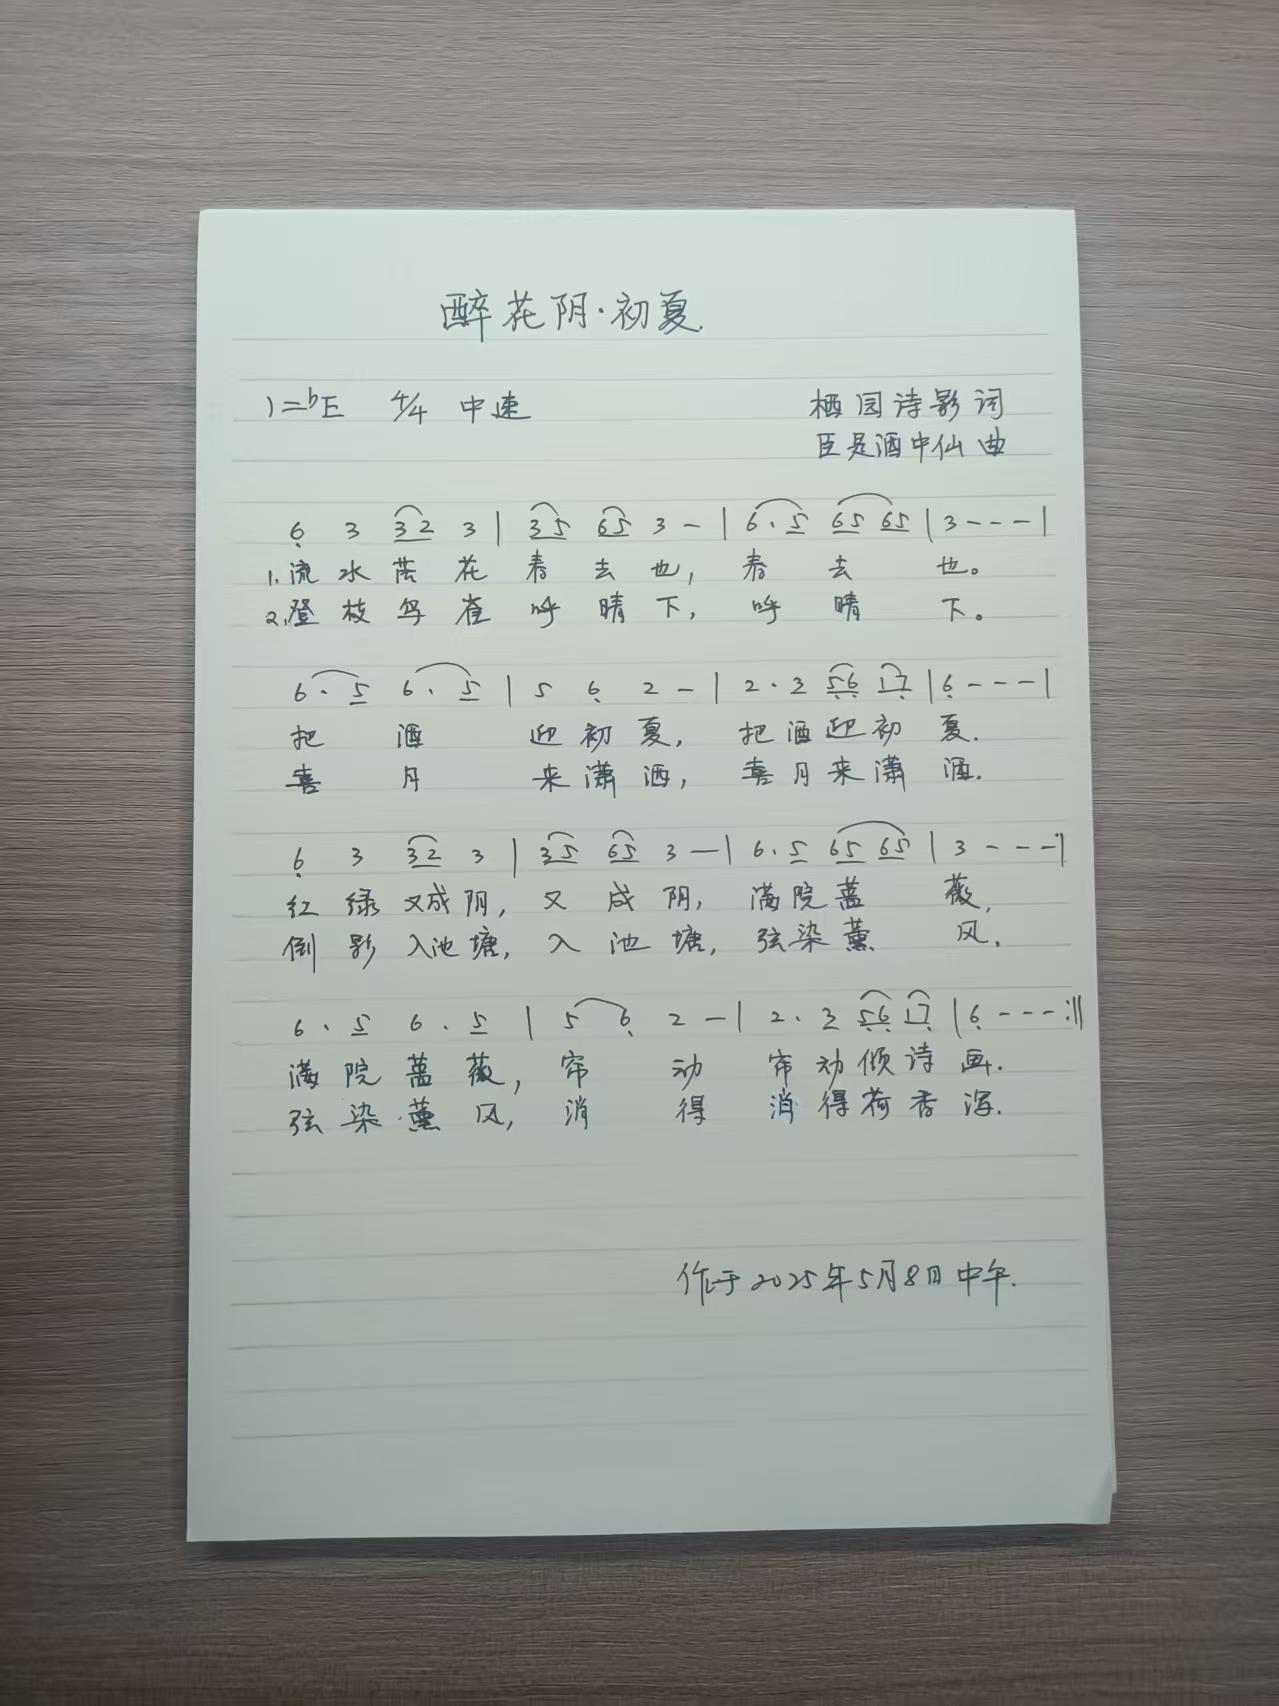 醉花阴·初夏
1=♭E 4/4 中速 栖园诗影词
臣是酒中仙曲
6̣ 3 3̲2̲ 3 | 3̲5̲ 6̲5̲ 3 - | 6 · 5̲ 6̲5̲ 6̲5̲ | 3 - - - |
1. 流水落花春去也, 春去也。
2. 登枝鸟雀呼晴下, 呼晴下。
6 · 5̲ 6 · 5̲ | 5 6̣ 2 - | 2 · 3̲ 5̣̲6̣̲ 1̲7̣̲ | 6̣ - - - |
把酒迎初夏, 把酒迎初夏.
喜月来潇洒, 喜月来潇洒.
6̣ 3 3̲2̲ 3 | 3̲5̲ 6̲5̲ 3 — | 6 · 5̲ 6̲5̲ 6̲5̲ | 3 - - - |
红绿又成阴, 又成阴, 满院蔷薇,
倒影入池塘, 入池塘, 弦染薰风,
6 · 5̲ 6 · 5̲ | 5 6̣ 2 — | 2 · 3̲ 5̣̲6̣̲ 1̲7̣̲ | 6̣ - - - :||
满院蔷薇, 帘动 帘动倾诗画.
弦染薰风, 消得 消得荷香泻.
作于2025年5月8日中午.